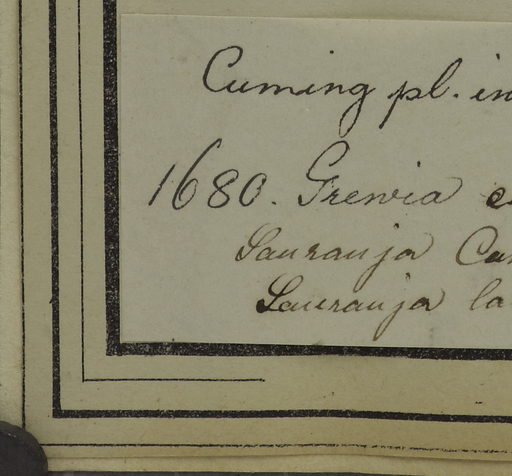 Cuming pl. in
1680. Grewia
Sauranja
Sauranja la